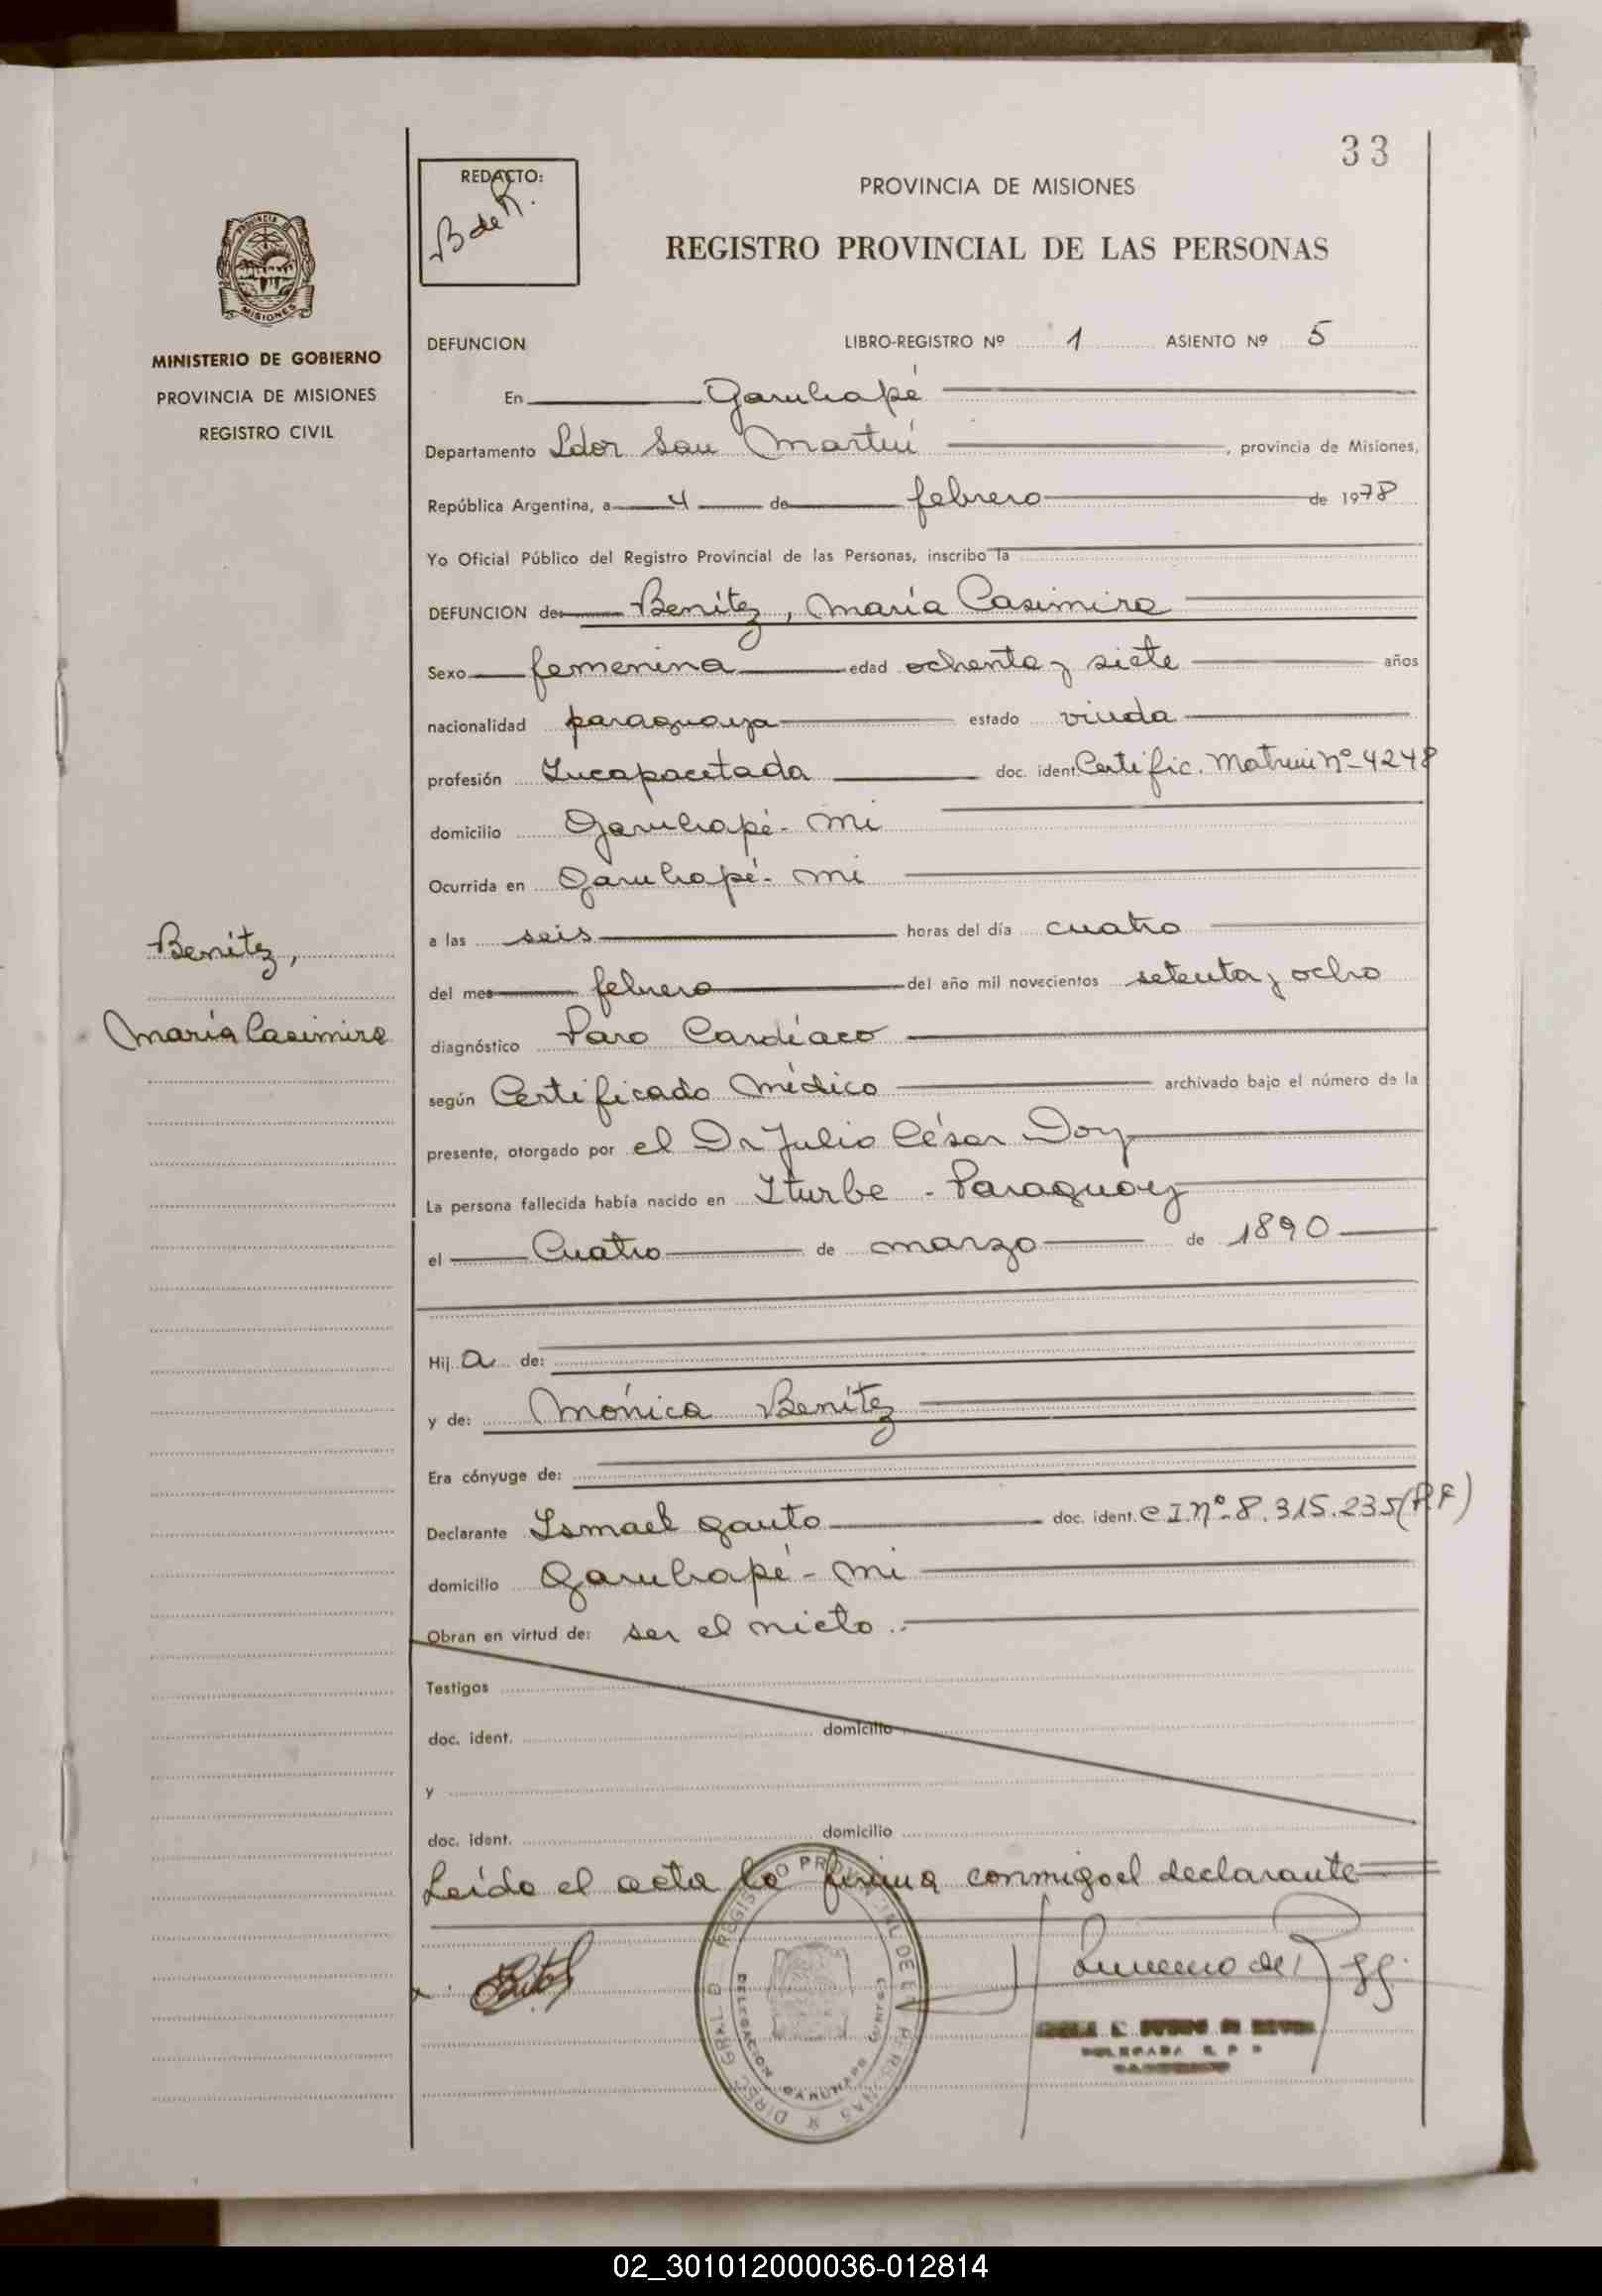 33
REDACTO:
B de R.
PROVINCIA DE MISIONES
REGISTRO PROVINCIAL DE LAS PERSONAS
PROVINCIA
MISIONES
MINISTERIO DE GOBIERNO
PROVINCIA DE MISIONES
REGISTRO CIVIL
DEFUNCION LIBRO-REGISTRO Nº 1 ASIENTO Nº 5
En Garuhapé
Departamento Ldor San Martín, provincia de Misiones,
República Argentina, a 4 de febrero de 1978
Yo Oficial Público del Registro Provincial de las Personas, inscribo la
DEFUNCION de: Benítez, María Casimira
Sexo femenina edad ochenta y siete años
nacionalidad paraguaya estado viuda
profesión Incapacitada doc. ident. Certific. Matrim Nº 4248
domicilio Garuhapé - Mi
Ocurrida en Garuhapé - Mi
a las seis horas del día cuatro
del mes febrero del año mil novecientos setenta y ocho
diagnóstico Paro Cardíaco
según Certificado Médico archivado bajo el número de la
presente, otorgado por el Dr Julio César Doy
La persona fallecida había nacido en Iturbe - Paraguay
el Cuatro de marzo de 1890
Hij a de:
y de: Mónica Benítez
Era cónyuge de:
Declarante Ismael Gauto doc. ident. C I. Nº 8.315.235 (P.F)
domicilio Garuhapé - Mi
Obran en virtud de: ser el nieto.-
Testigos
doc. ident. domicilio
y
doc. ident. domicilio
Leído el acta la firma conmigo el declarante
Benítez,
María Casimira
DIREC. GRAL. D REGISTRO PROVINCIAL DE LAS PERSONAS
DELEGACION GARUHAPE
DELEGADA R. P. P.
02_301012000036-012814